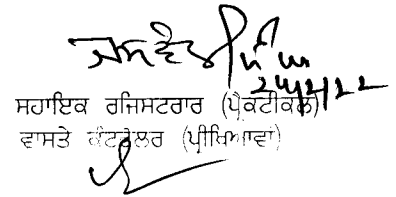 ਜਸਵੰਤ ਸਿੰਘ
ਸਹਾਇਕ ਰਜਿਸਟਰਾਰ (ਪ੍ਰੈਕਟੀਕਲ)
ਵਾਸਤੇ ਕੰਟਰੋਲਰ (ਪ੍ਰੀਖਿਆਵਾਂ)